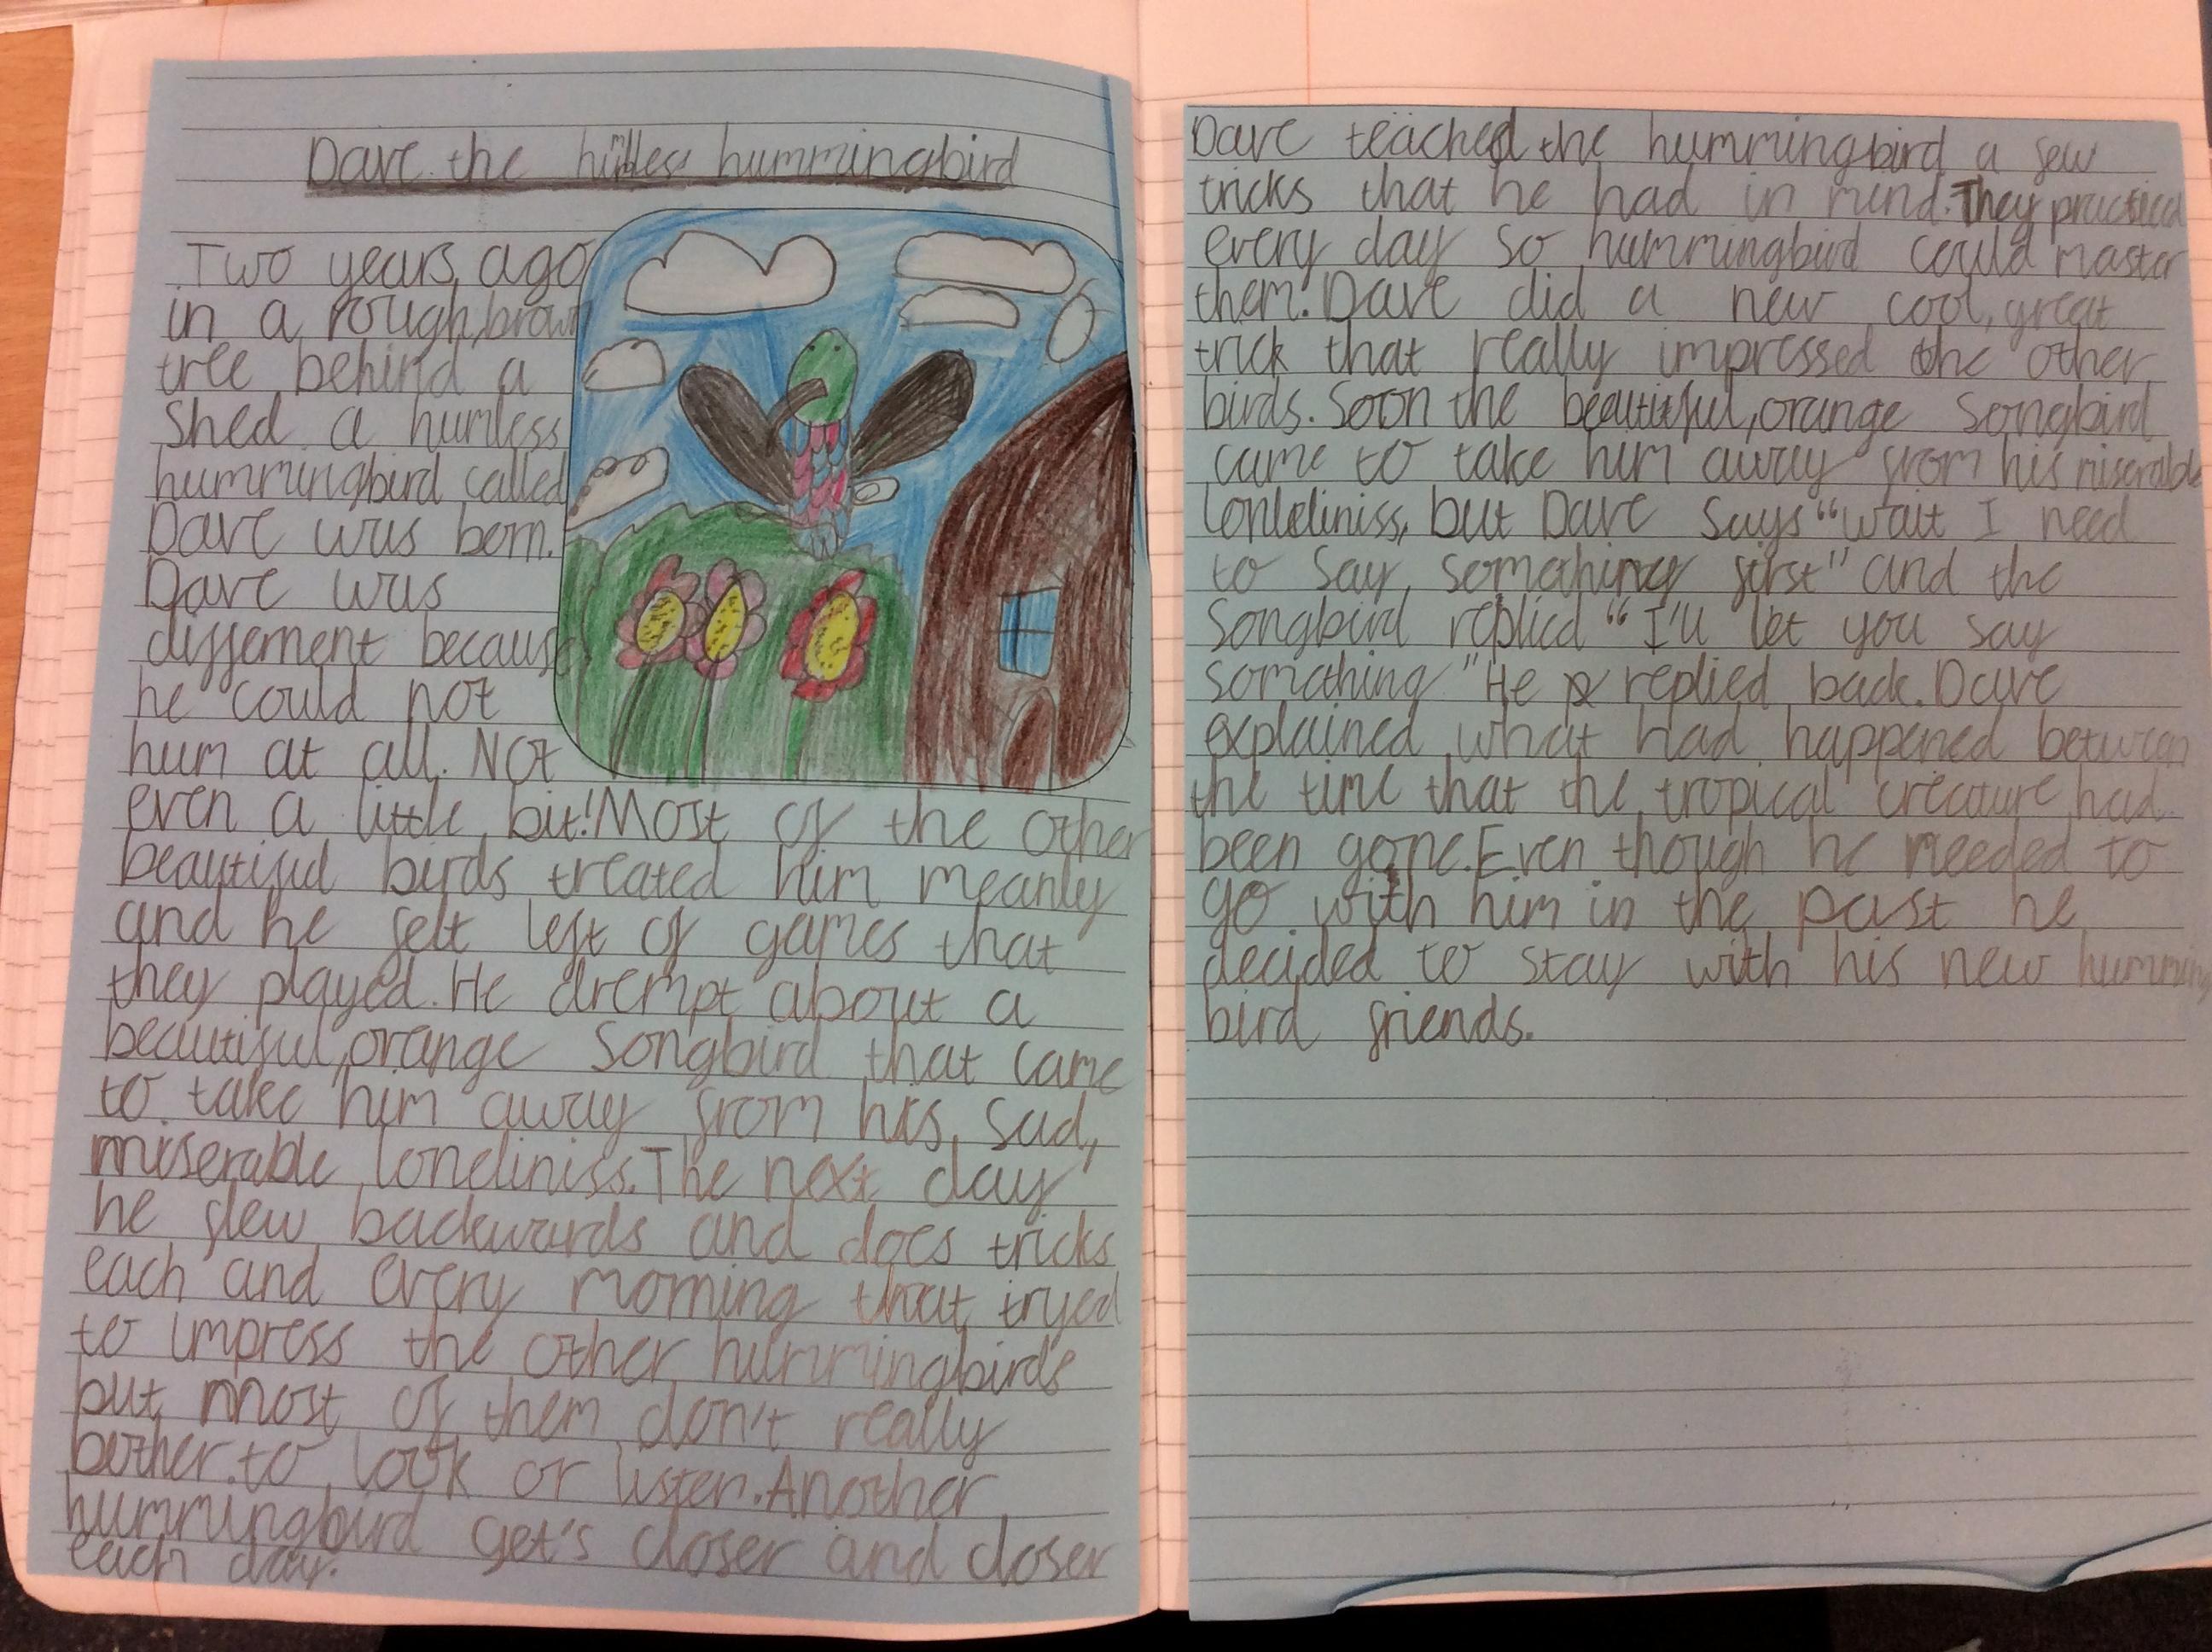 Dave the humless hummingbird
Two years ago
in a rough, brown
tree behind a
shed a humless
hummingbird called
Dave was born.
Dave was
differnent because
he could not
hum at all. Not
even a little bit! Most of the other
beautiful birds treated him meanly
and he felt left of games that
they played. He drempt about a
beautiful, orange songbird that came
to take him away from his sad,
miserable loneliniss. The next day
he flew backwards and does tricks
each and every morning that tryed
to impress the other hummingbirds
but most of them don't really
bother to look or listen. Another
hummingbird get's closer and closer
each day.
Dave teached the hummingbird a few
tricks that he had in mind. They practiced
every day so hummingbird could master
them. Dave did a new cool, great
trick that really impressed the other
birds. Soon the beautiful, orange songbird
came to take him away from his miserable
lonleliniss, but Dave says "wait I need
to say somathing first" and the
songbird replied "I'll let you say
somathing" He replied back. Dave
explained what had happened between
the time that the tropical creature had
been gone. Even though he needed to
go with him in the past he
decided to stay with his new humming
bird friends.